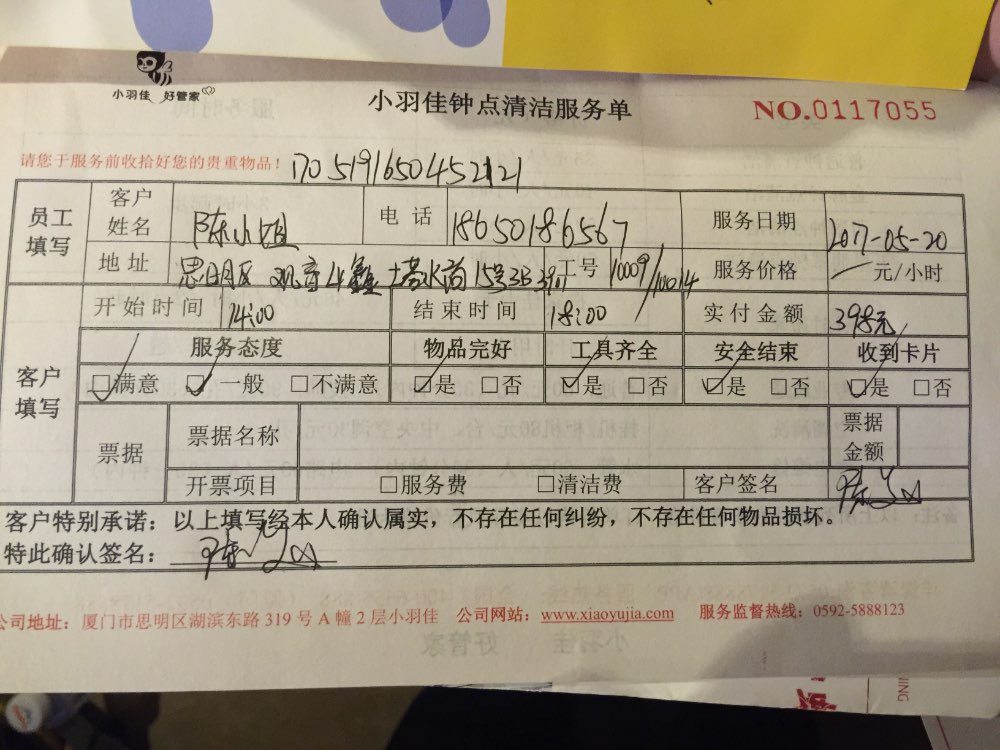 小羽佳 好管家
小羽佳钟点清洁服务单
NO.0117055
请您于服务前收拾好您的贵重物品！ 1705191650452121
员工填写
客户姓名 陈小姐 电话 18650186567 服务日期 2017-05-20
地址 思明区 工号 10009/10014 服务价格 一 元/小时
客户填写
开始时间 14:00 结束时间 18:00 实付金额 398元
服务态度 物品完好 工具齐全 安全结束 收到卡片
☑满意 ☑一般 □不满意 ☑是 □否 ☑是 □否 ☑是 □否 ☑是 □否
票据 票据名称 票据金额
开票项目 □服务费 □清洁费 客户签名
客户特别承诺：以上填写经本人确认属实，不存在任何纠纷，不存在任何物品损坏。
特此确认签名：
公司地址：厦门市思明区湖滨东路 319 号 A 幢 2 层小羽佳 公司网站：www.xiaoyujia.com 服务监督热线：0592-5888123